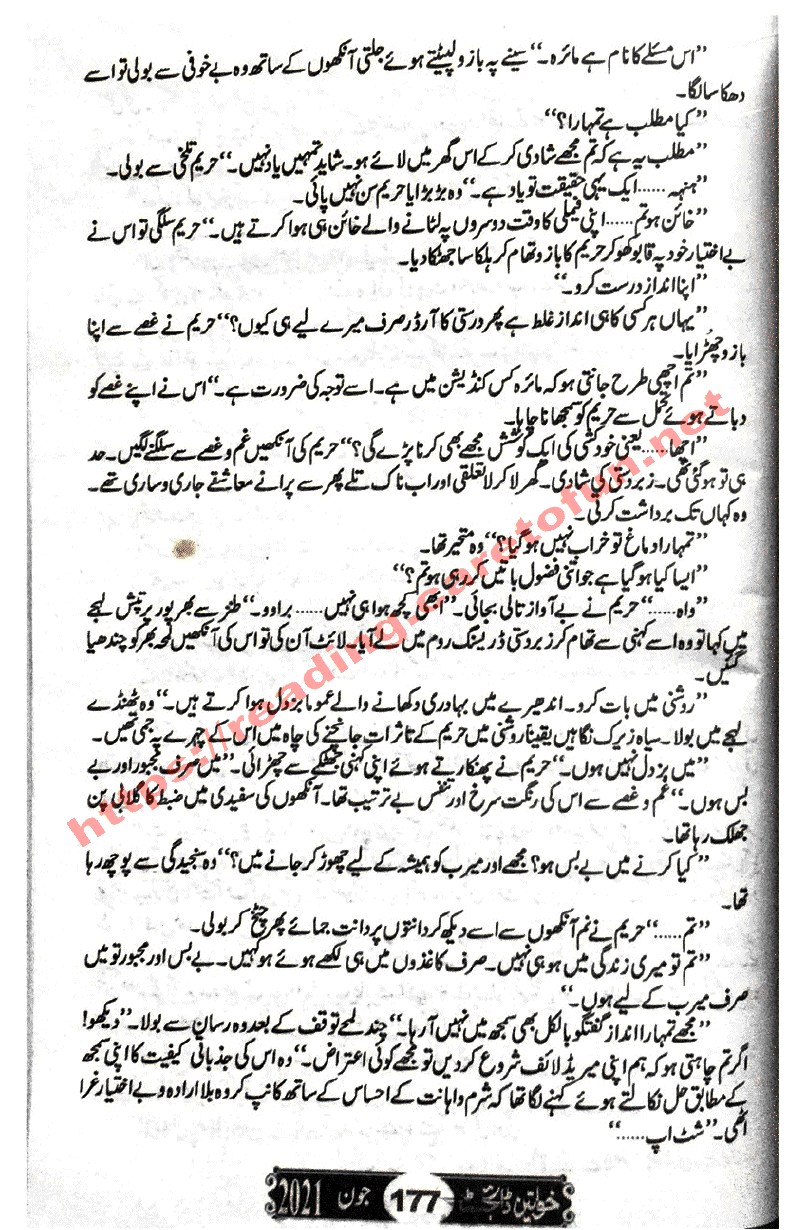 ”اس مسئلے کا نام ہے مائرہ۔“ سینے پہ بازو لپیٹتے ہوئے جلتی آنکھوں کے ساتھ وہ بے خوفی سے بولی تو اسے
دھکا سا لگا۔
”کیا مطلب ہے تمہارا؟“
”مطلب یہ ہے کہ تم مجھے شادی کر کے اس گھر میں لائے ہو۔ شاید تمہیں یاد نہیں۔“ حریم تلخی سے بولی۔
”ہنہہ...... ایک یہی حقیقت تو یاد ہے۔“ وہ بڑبڑایا حریم سن نہیں پائی۔
”خائن ہو تم...... اپنی فیملی کا وقت دوسروں پہ لٹانے والے خائن ہی ہوا کرتے ہیں۔“ حریم سلگی تو اس نے
بے اختیار خود پہ قابو کھو کر حریم کا بازو تھام کر ہلکا سا جھٹکا دیا۔
”اپنا انداز درست کرو۔“
”یہاں ہر کسی کا ہی انداز غلط ہے پھر درستی کا آرڈر صرف میرے لیے ہی کیوں؟“ حریم نے غصے سے اپنا
بازو چھڑایا۔
”تم اچھی طرح جانتی ہو کہ مائرہ کس کنڈیشن میں ہے۔ اسے توجہ کی ضرورت ہے۔“ اس نے اپنے غصے کو
دباتے ہوئے تحمل سے حریم کو سمجھانا چاہا۔
”اچھا...... یعنی خودکشی کی ایک کوشش مجھے بھی کرنا پڑے گی؟“ حریم کی آنکھیں غم و غصے سے سلگنے لگیں۔ حد
ہی تو ہو گئی تھی۔ زبردستی کی شادی۔ گھر لا کر لاتعلقی اور اب ناک تلے پھر سے پرانے معاشقے جاری و ساری تھے۔
وہ کہاں تک برداشت کرتی۔
”تمہارا دماغ تو خراب نہیں ہو گیا؟“ وہ متحیر تھا۔
”ایسا کیا ہو گیا ہے جو اتنی فضول باتیں کر رہی ہو تم؟“
”واہ......“ حریم نے بے آواز تالی بجائی۔ ”ابھی کچھ ہوا ہی نہیں...... براوو۔“ طنز سے بھرپور پرتپش لہجے
میں کہا تو وہ اسے کہنی سے تھام کر زبردستی ڈریسنگ روم میں لے آیا۔ لائٹ آن کی تو اس کی آنکھیں لمحہ بھر کو چندھیا
گئیں۔
”روشنی میں بات کرو۔ اندھیرے میں بہادری دکھانے والے عموماً بزدل ہوا کرتے ہیں۔“ وہ ٹھنڈے
لہجے میں بولا۔ سیاہ زیرک نگاہیں یقیناً روشنی میں حریم کے تاثرات جانچنے کی چاہ میں اس کے چہرے پہ جمی تھیں۔
”میں بزدل نہیں ہوں۔“ حریم نے پھنکارتے ہوئے اپنی کہنی جھٹکے سے چھڑائی۔ ”میں صرف مجبور اور بے
بس ہوں۔“ غم و غصے سے اس کی رنگت سرخ اور تنفس بے ترتیب تھا۔ آنکھوں کی سفیدی میں ضبط کا گلابی پن
جھلک رہا تھا۔
”کیا کرنے میں بے بس ہو؟ مجھے اور میرب کو ہمیشہ کے لیے چھوڑ کر جانے میں؟“ وہ سنجیدگی سے پوچھ رہا
تھا۔
”تم......“ حریم نے نم آنکھوں سے اسے دیکھ کر دانتوں پر دانت جمائے پھر چیخ کر بولی۔
”تم تو میری زندگی میں ہو ہی نہیں۔ صرف کاغذوں میں ہی لکھے ہوئے ہو کہیں۔ بے بس اور مجبور تو میں
صرف میرب کے لیے ہوں۔“
”مجھے تمہارا انداز گفتگو بالکل بھی سمجھ میں نہیں آ رہا۔“ چند لمحے توقف کے بعد وہ رسان سے بولا۔ ”دیکھو!
اگر تم چاہتی ہو کہ ہم اپنی میریڈ لائف شروع کر دیں تو مجھے کوئی اعتراض۔“ وہ اس کی جذباتی کیفیت کا اپنی سمجھ
کے مطابق حل نکالتے ہوئے کہنے لگا تھا کہ شرم و اہانت کے احساس کے ساتھ کانپ کر وہ بلا ارادہ و بے اختیار غرا
اٹھی۔ ”شٹ اپ......“
خواتین ڈائجسٹ 177 جون 2021
https://reading.caretofun.net